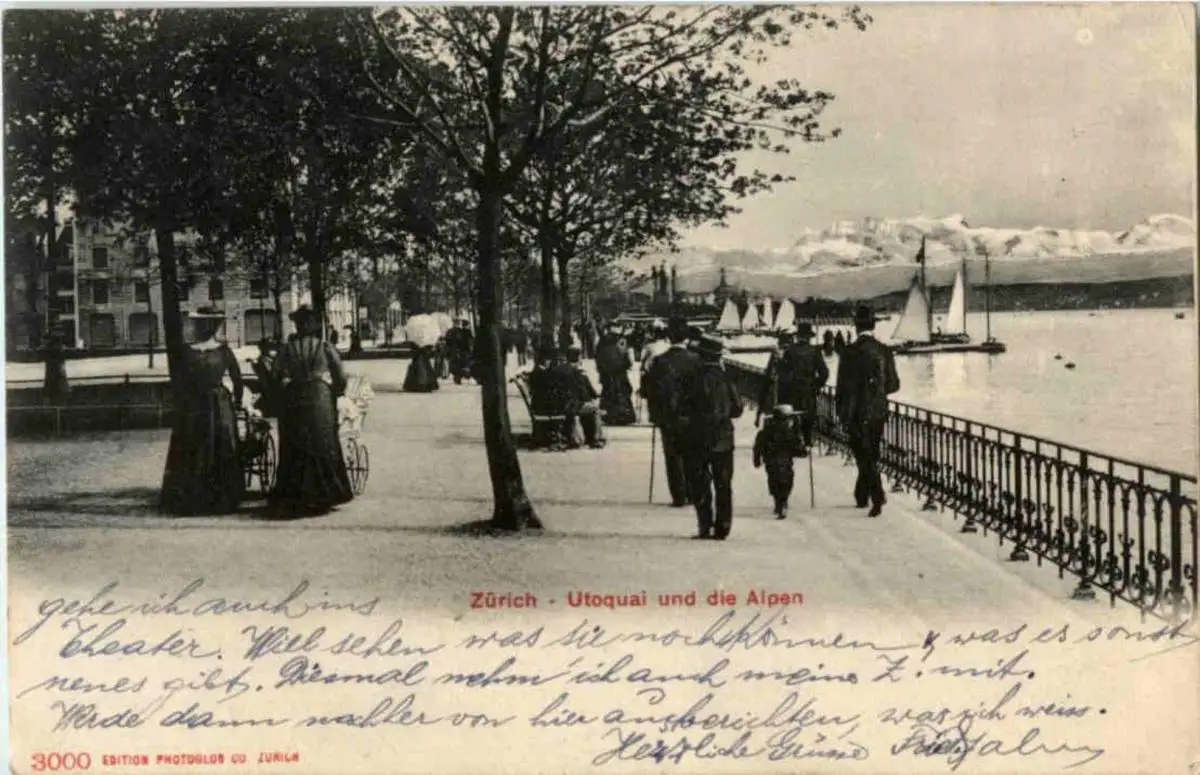 Zürich - Utoquai und die Alpen
gehe ich auch ins
Theater. Will sehen was sie noch können & was es sonst
neues gibt. Diesmal nehm' ich auch meine Z. mit.
Werde dann nachher von hier aus berichten, was ich weiss.
Herzliche Grüsse
3000 EDITION PHOTOGLOB CO. ZÜRICH